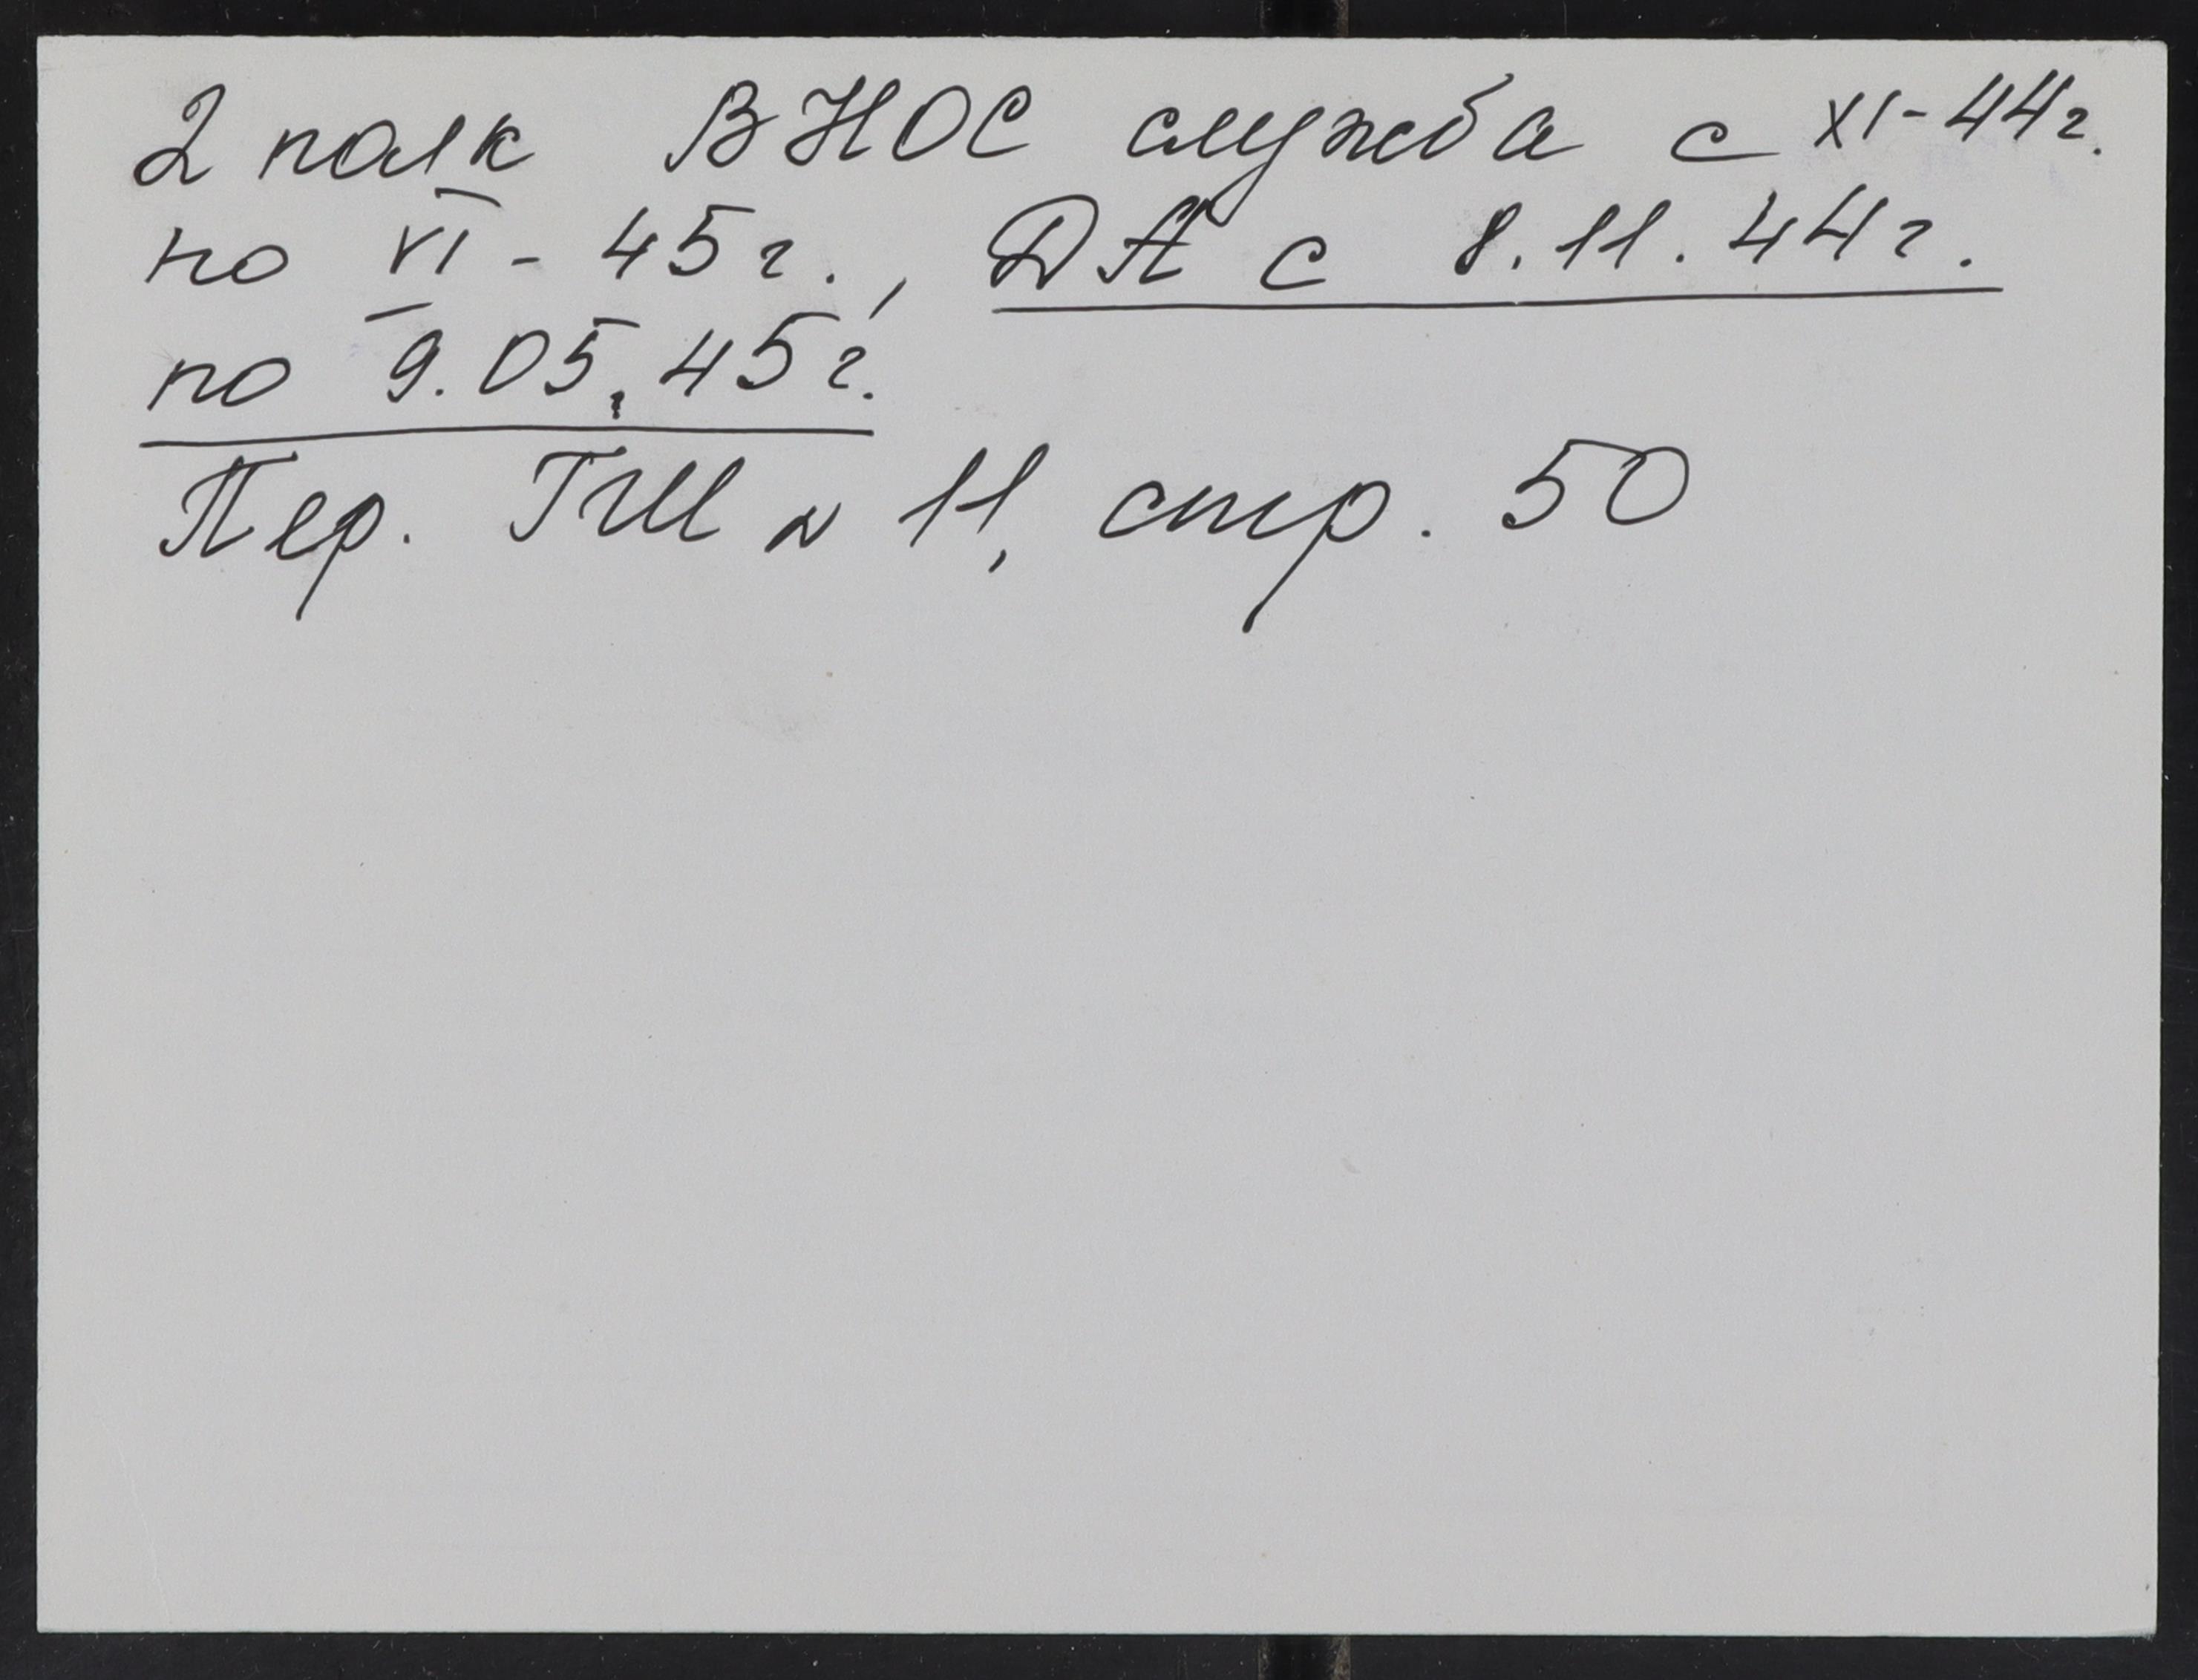 2 полк ВНОС служба с XI-44г.
по VI - 45г., ДА с 8.11.44г.
по 9.05.45г.
Пер. ГШ № 11, стр. 50